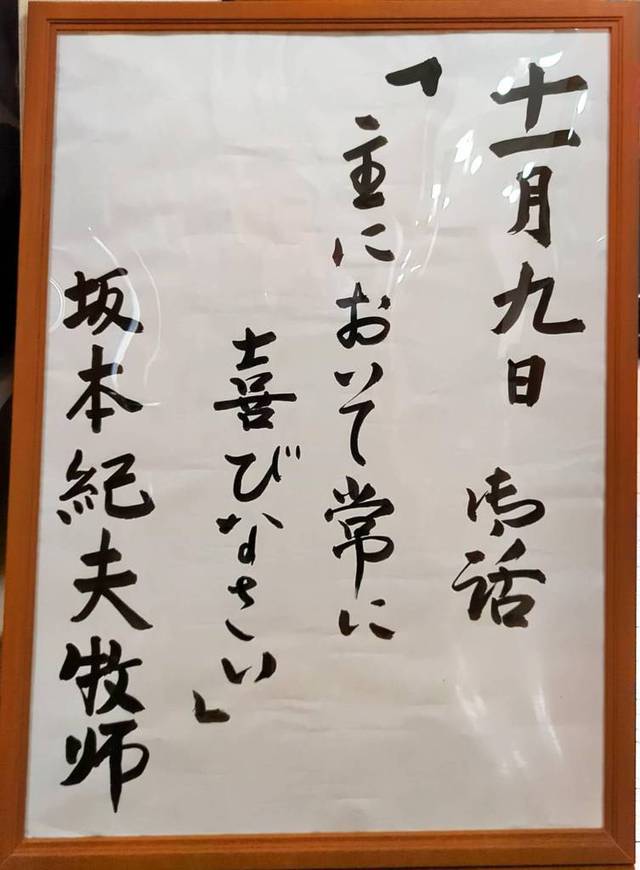 十一月九日 御話
「主において常に
喜びなさい」
坂本紀夫牧师